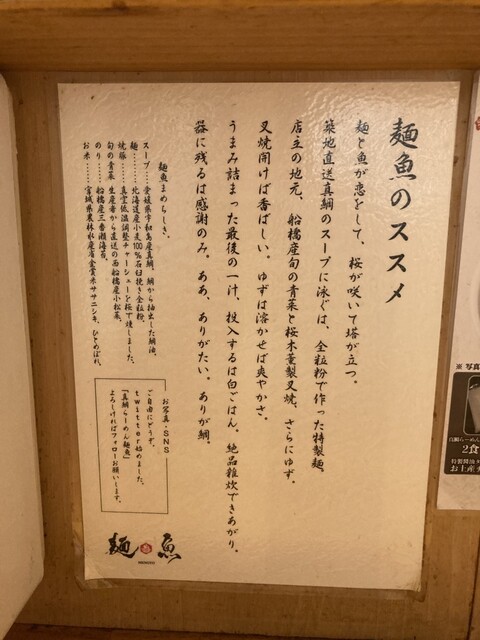 麺魚のススメ
麺と魚が恋をして、桜が咲いて塔が立つ。
築地直送真鯛のスープに泳ぐは、全粒粉で作った特製麺。
店主の地元、船橋産旬の青菜と桜木薫製叉焼、さらにゆず。
叉焼開けば香ばしい。ゆずは溶かせば爽やかさ。
うまみ詰まった最後の一汁、投入するは白ごはん。絶品雑炊できあがり。
器に残るは感謝のみ。ああ、ありがたい。ありが鯛。
麺魚まめちしき。
スープ……愛媛県宇和島産真鯛。鯛から抽出した鯛油。
麺………北海道産小麦100%石臼挽き全粒粉。
焼豚……真空低温調整チャーシューを桜で燻しました。
旬の青菜 生産者から直送の西船橋産小松菜。
のり……船橋産三番瀬海苔。
お米……宮城県農林水産省金賞米ササニシキ、ひとめぼれ。
お写真・SNS
ご自由にどうぞ。
twitter始めました。
「真鯛らーめん麺魚」
よろしければフォローお願いします。
麺魚
※写真
真鯛らーめん
2食
特製醤油
お土産